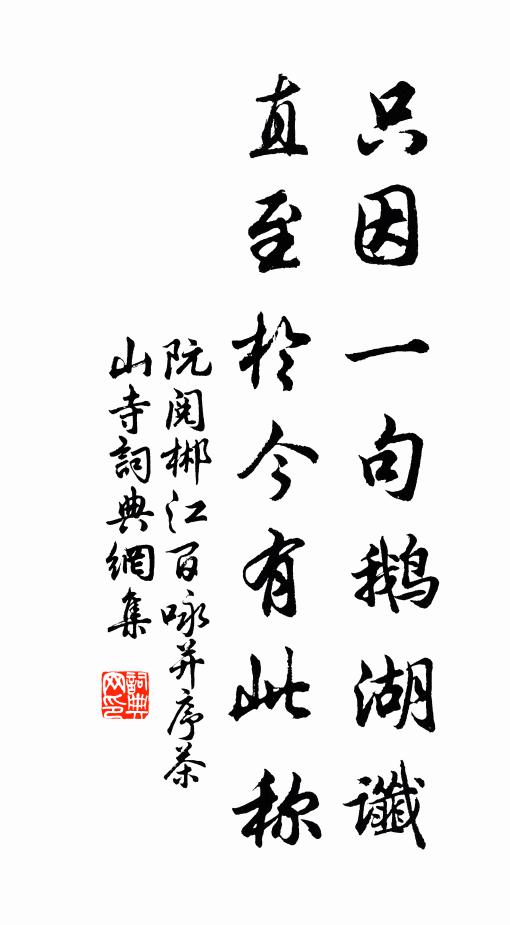 只因一句鹅湖谶
直至於今有此称
阮阅郴江百咏并序茶
山寺詞典網集
詞典网印